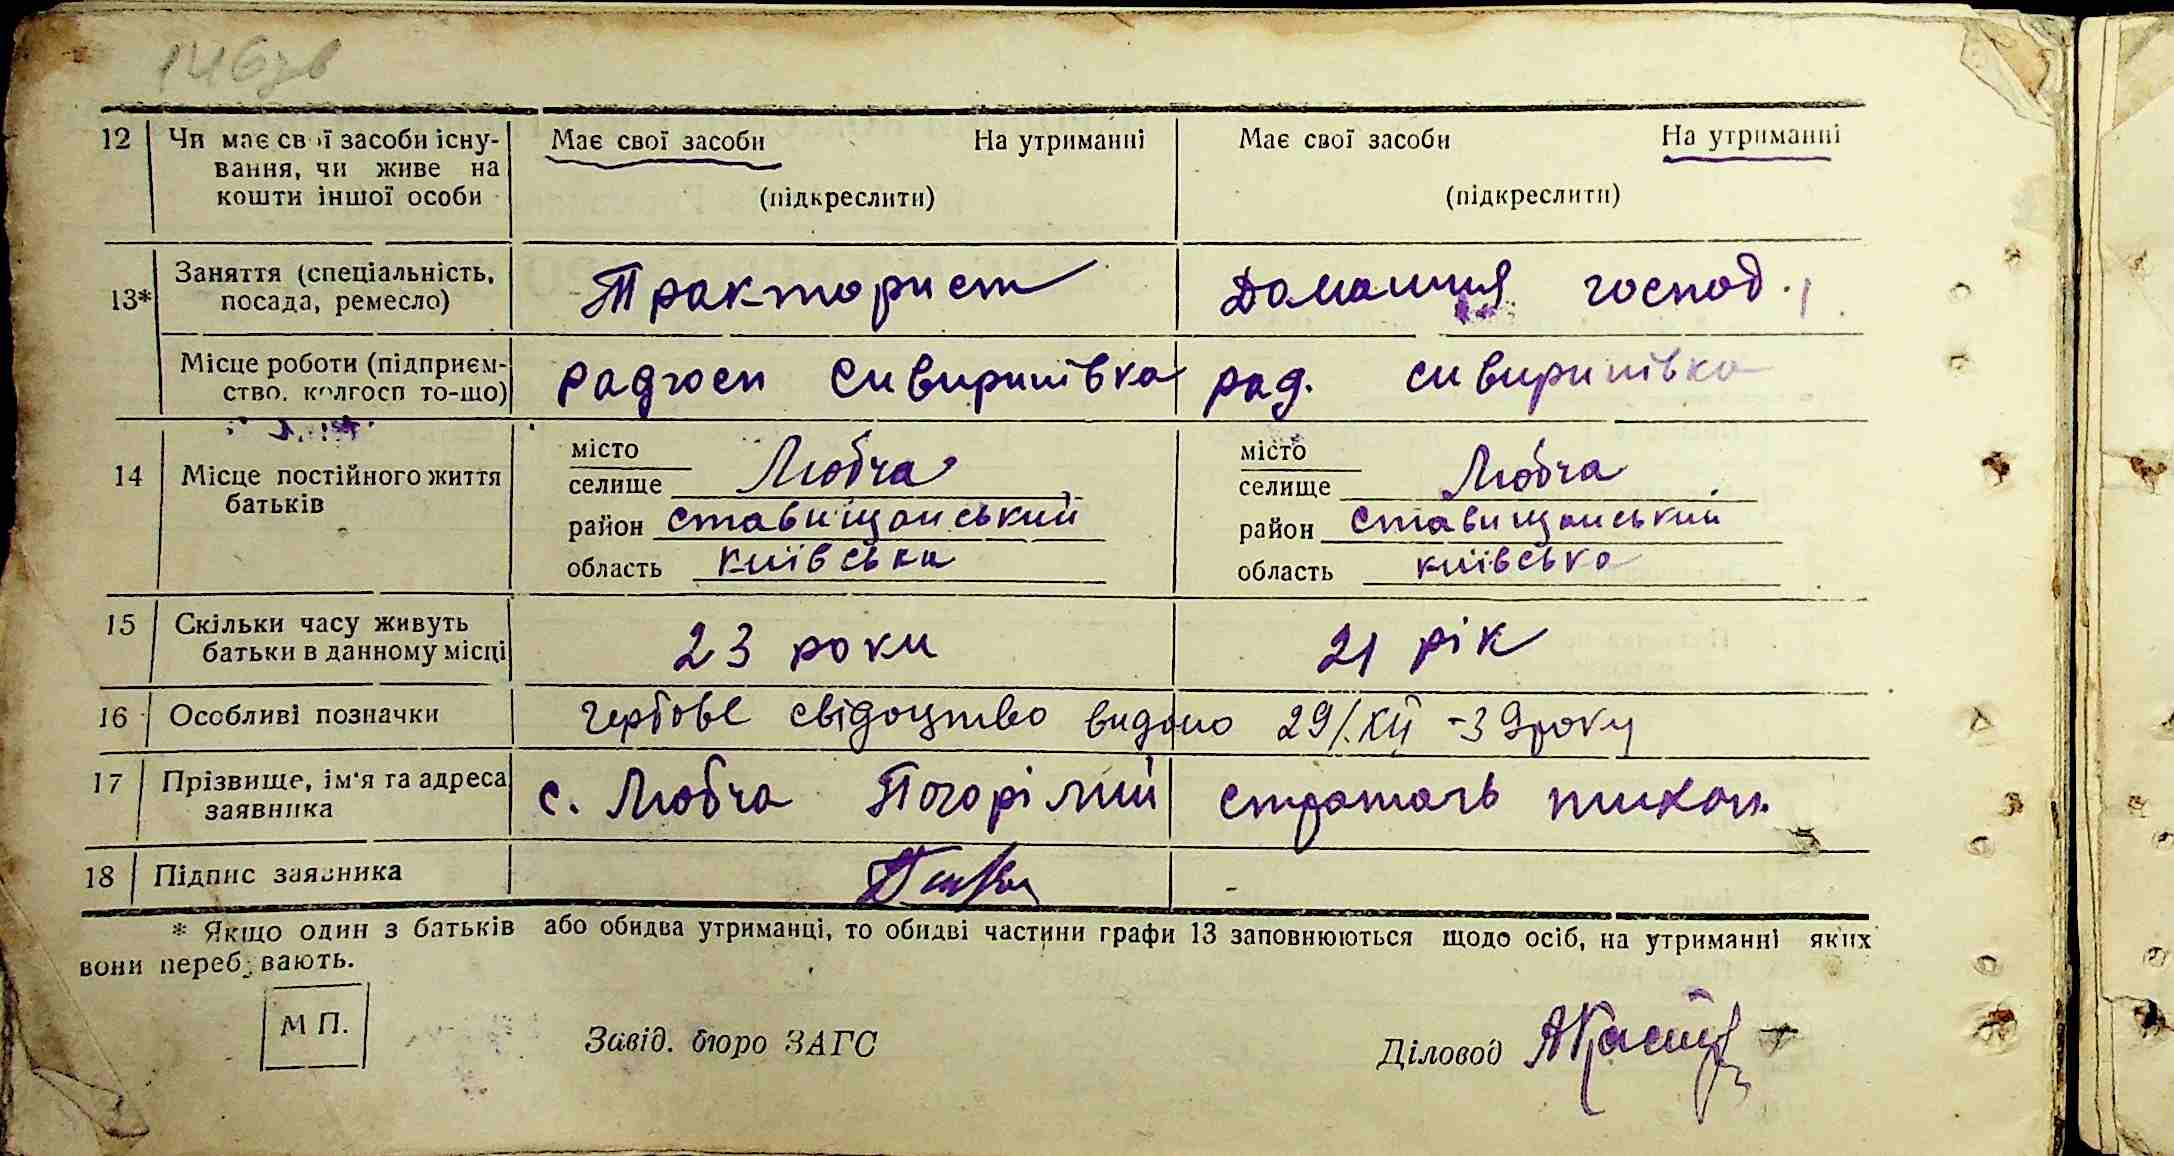 146зв
12 Чи має свої засоби існу- Має свої засоби На утриманні Має свої засоби На утриманні
вання, чи живе на
кошти іншої особи (підкреслити) (підкреслити)
13* Заняття (спеціальність, Тракторист Домашня господ.
посада, ремесло)
Місце роботи (підприєм- радгосп Сивиринівка рад. сивиринівка
ство, колгосп то-що)
14 Місце постійного життя місто Любча місто Любча
батьків селище селище
район ставищанський район ставищанський
область київська область київська
15 Скільки часу живуть 23 роки 21 рік
батьки в данному місці
16 Особливі позначки гербове свідоцтво видано 29/XII -39року
17 Прізвище, ім'я та адреса с. Любча Погорілий
заявника
18 Підпис заявника -
* Якщо один з батьків або обидва утриманці, то обидві частини графи 13 заповнюються щодо осіб, на утриманні яких
вони перебувають.
М П. Завід. бюро ЗАГС Діловод